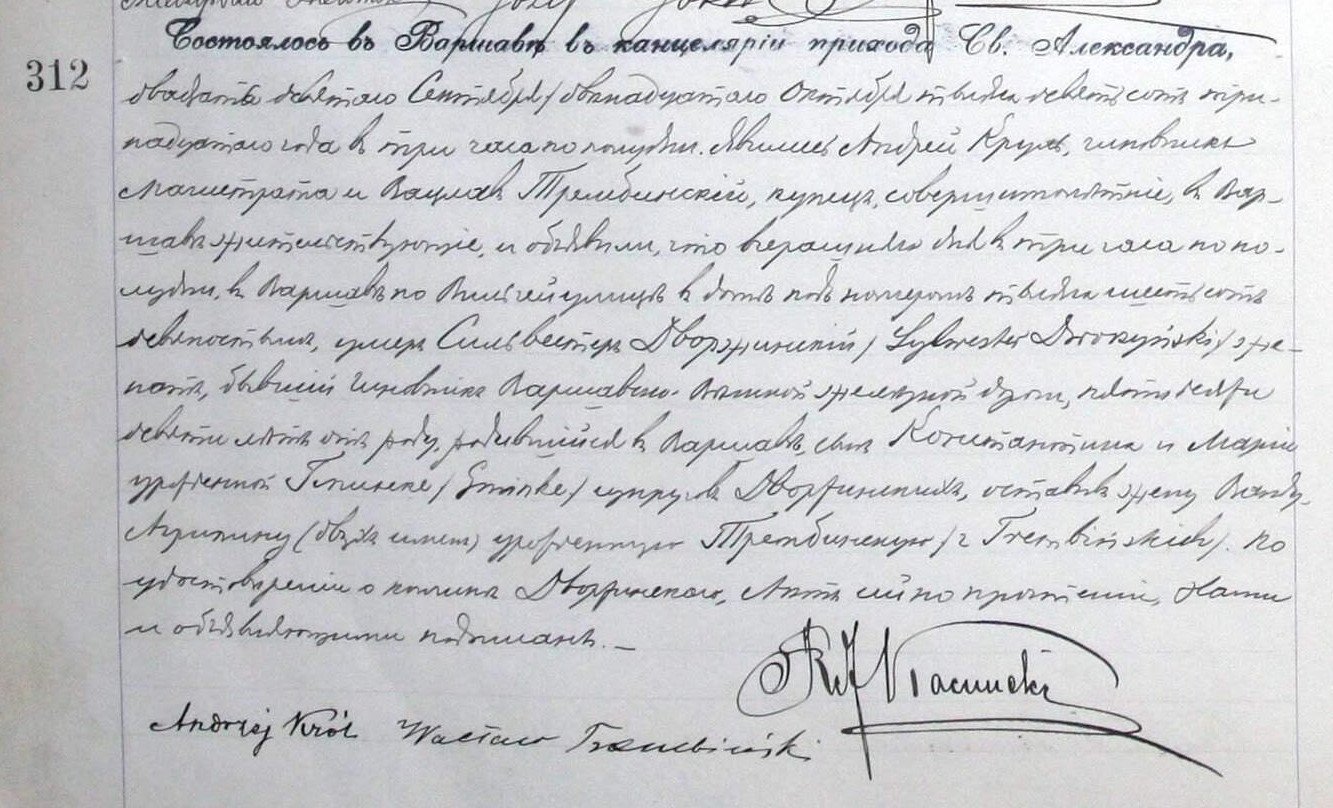 312
Состоялось въ Варшавѣ въ канцеляріи прихода Св. Александра,
двадцать девятаго Сентября / двѣнадцатаго Октября тысяча девятьсотъ три-
надцатаго года въ три часа по полудни. Явились Андрей Круль, чиновникъ
Магистрата и Вацлавъ Трембинскій, купецъ, совершеннолѣтніе, въ Вар-
шавѣ жительствующіе, и объявили, что вчерашняго дня въ три часа по по-
лудни, въ Варшавѣ по улицѣ въ домѣ подъ номеромъ тысяча шестьсотъ
умеръ Сильвестеръ Дворжинскій / Sylwester Dworzyński / же-
натъ, бывшій чиновникъ Варшавско-Вѣнской желѣзной дороги, пятидесяти
девяти лѣтъ отъ роду, родившійся въ Варшавѣ, сынъ Константина и Маріи
урожденной Гминске / Gminske / супруговъ Дворжинскихъ, оставивъ жену Ванду-
Агрипину (двухъ именъ) урожденную Трембинскую / z Trembińskich /. По
удостовѣреніи о кончинѣ Дворжинскаго, Актъ сей по прочтеніи, Нами
и объявляющими подписанъ. —
Andrzej Król Wacław Trembiński